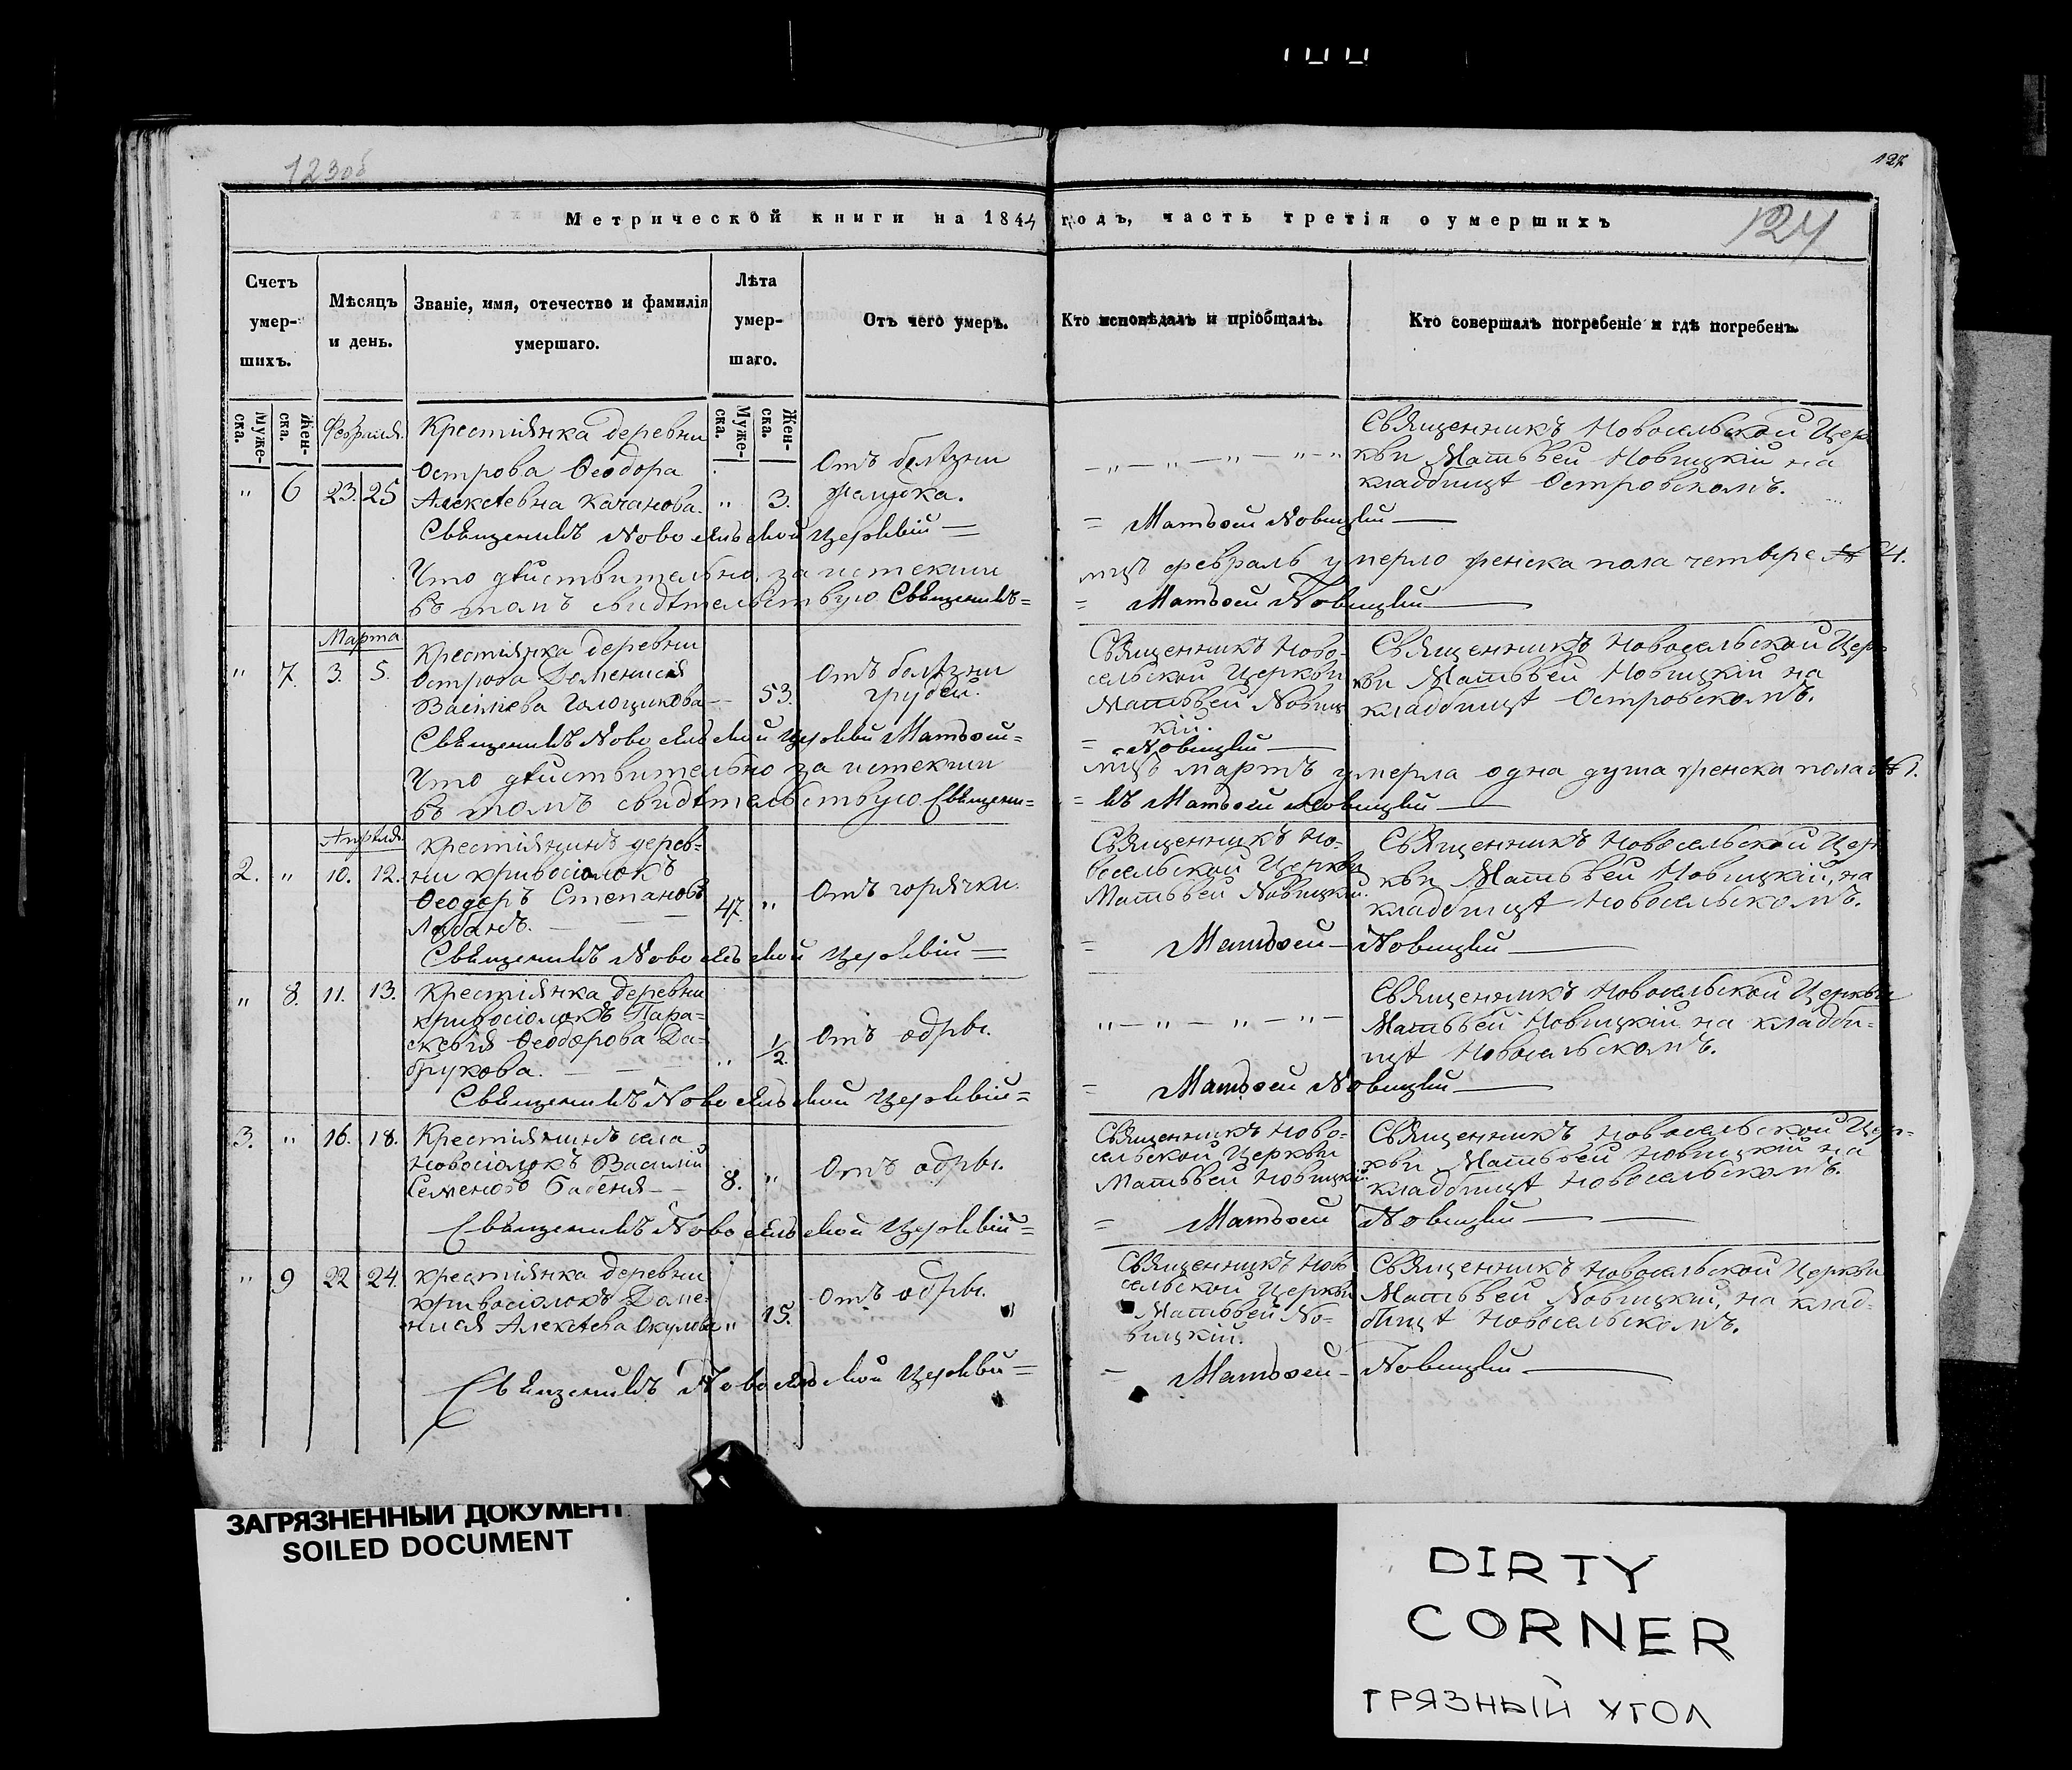 123об
127
124
Метрической книги на 1844 годъ, часть третія о умершихъ
Счетъ умер-шихъ.
Мѣсяцъ и день.
Званіе, имя, отечество и фамилія умершаго.
Лѣта умер-шаго.
Отъ чего умеръ.
Кто исповѣдалъ и пріобщалъ.
Кто совершалъ погребеніе и гдѣ погребенъ.
Муже-ска.
Жен-ска.
Муже-ска.
Жен-ска.
Февраля.
" 6 23. 25
Крестіянка деревни
Острова Ѳеодора
Алексѣевна Качанова.
" 3.
Отъ болѣзни
Священникъ Новосельской Цер
кви Матѳѣей Новицкій на
кладбищѣ Островскомъ.
Священникъ Новосельской Церквій =
= Матвей Новицкий
Что дѣйствительно за истекши
мцъ февраль умерло женска пола четверо № 4.
въ томъ свидѣтельствую Священникъ =
= Матвей Новицкий
Марта
" 7. 3. 5.
Крестіянка деревни
Острова Доменикія
Васільева Голощикова
53.
Отъ болѣзни
грудей.
Священникъ Ново-
сельской Церкви
Матѳѣей Новиц
кій.
Священникъ Новосельской Цер-
кви Матѳѣей Новицкій на
кладбищѣ Островскомъ.
Священникъ Новосельской Церкви Матвей =
= Новицкий
Что дѣйствительно за истекши
мцъ мартъ умерла одна душа женска пола № 1.
въ томъ свидѣтельствую Священни =
= къ Матвей Новицкий
Апрѣля
2. " 10. 12.
Крестіянинъ дерев-
ни кривосіолокъ
Ѳеодоръ Степановъ
Лобанъ.
47. "
Отъ горячки.
Священникъ Но-
восельской Церкви
Матѳѣей Новицкій.
Священникъ Новосельской Цер
кви Матѳѣей Новицкій, на
кладбищѣ Новосельскомъ.
Священникъ Новосельской Церквій =
= Матвей Новицкий
" 8. 11. 13.
Крестіянка деревни
кривосіолокъ Пара-
скевія Ѳеодорова Да-
брукова.
" 1/2.
Отъ одры.
Священникъ Новосельской Церкви
Матѳѣей Новицкій на кладби-
щѣ Новосельскомъ.
Священникъ Новосельской Церквій =
= Матвей Новицкий
3. " 16. 18.
Крестіянинъ села
Новосіолокъ Василій
Семеновъ Бабеня
8. "
Отъ одры.
Священникъ Ново-
сельской Церкви
Матѳѣей Новицкій
Священникъ Новосельской Цер-
кви Матѳѣей Новицкій на
кладбищѣ Новосельскомъ.
Священникъ Новосельской Церквій =
= Матвей Новицкий
" 9 22 24.
крестіянка деревни
кривосіолокъ Доме-
никія Алексѣева Окулова
" 15.
Отъ одры.
Священникъ Нов
сельской Церкви
Матѳѣей Но-
вицкій.
Священникъ Новосельской Церкви
Матѳѣей Новицкій, на клад-
бищѣ Новосельскомъ.
Священникъ Новосельской Церкви =
= Матвей Новицкий
ЗАГРЯЗНЕННЫЙ ДОКУМЕНТ
SOILED DOCUMENT
DIRTY
CORNER
ГРЯЗНЫЙ УГОЛ